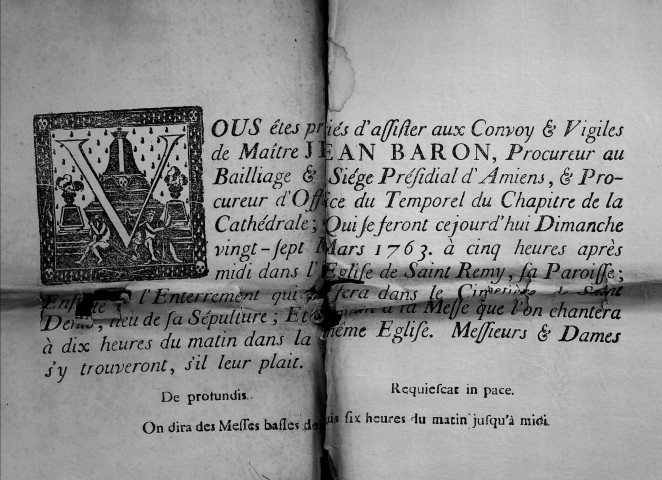 VOUS étes priés d'assister aux Convoy & Vigiles
de Maître JEAN BARON, Procureur au
Bailliage & Siége Présidial d'Amiens, & Pro-
cureur d'Office du Temporel du Chapitre de la
Cathédrale; Qui se feront cejourd'hui Dimanche
vingt-sept Mars 1763. à cinq heures après
midi dans l'Eglise de Saint Remy, sa Paroisse;
l'Enterrement qui se fera dans le Cimetière de Saint
Denis, lieu de sa Sépulture; Et à la Messe que l'on chantera
à dix heures du matin dans la même Eglise. Messieurs & Dames
s'y trouveront, s'il leur plait.
De profundis. Requiescat in pace.
On dira des Messes basses depuis six heures du matin jusqu'à midi.